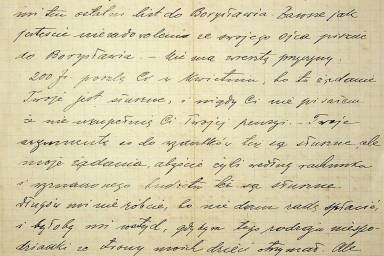 mi ten ostatni list do Borysławia. Zawsze jak
jesteś niezadowolona ze swojego ojca piszesz
do Borysławia. — Nie ma zresztą przyczyny.
200 fr poszlę Ci w kwietniu, bo to żądanie
Twoje jest słuszne, i nigdy Ci nie pisałem
że nie uzupełnię Ci Twojej pensyi. Twoje
argumenta co do wydatków też są słuszne ale
moje żądania, abyście żyli według rachunku
i wyznaczonego budżetu też są słuszne
długów mi nie róbcie, bo nie dam rady spłacić,
i byłoby mi wstyd, gdybym tego rodzaju niespo-
dzianki ze strony moich dzieci otrzymał. Ale